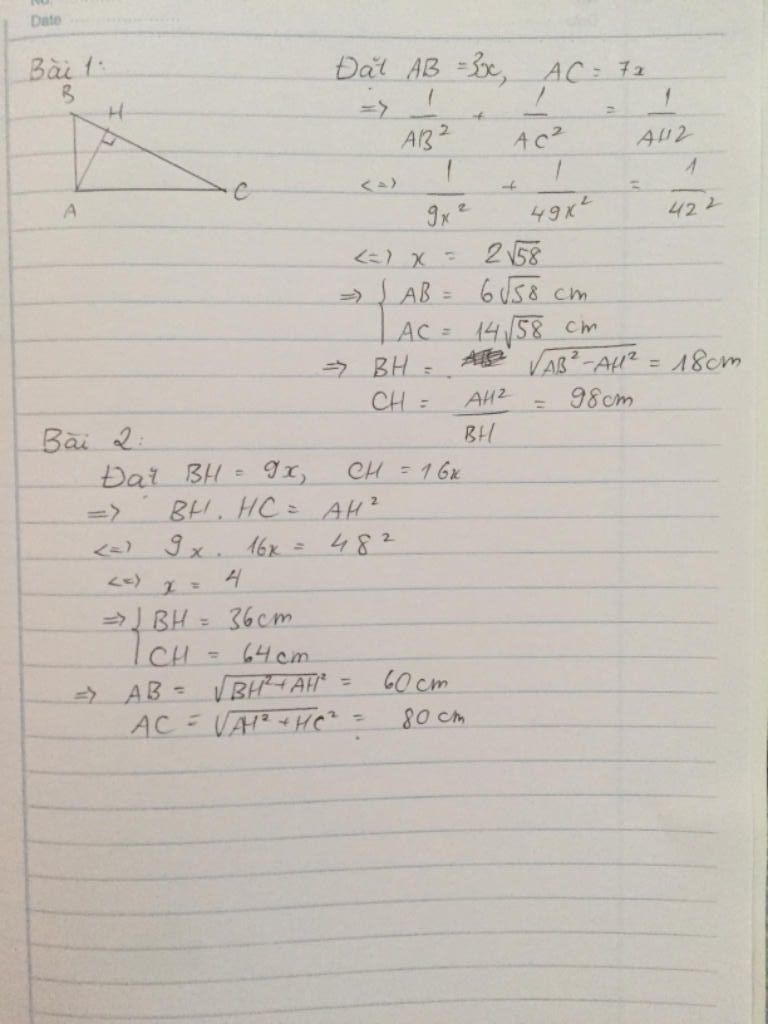 No.
Date
Bài 1:
B
H
A
C
Đặt AB = 3x, AC = 7x
=> 1/AB² + 1/AC² = 1/AH2
<=> 1/9x² + 1/49x² = 1/42²
<=> x = 2√58
=> { AB = 6√58 cm
AC = 14√58 cm
=> BH = √AB²-AH² = 18cm
CH = AH²/BH = 98cm
Bài 2:
Đặt BH = 9x, CH = 16x
=> BH . HC = AH²
<=> 9x . 16x = 48²
<=> x = 4
=> { BH = 36cm
CH = 64cm
=> AB = √BH²+AH² = 60cm
AC = √AH²+HC² = 80cm